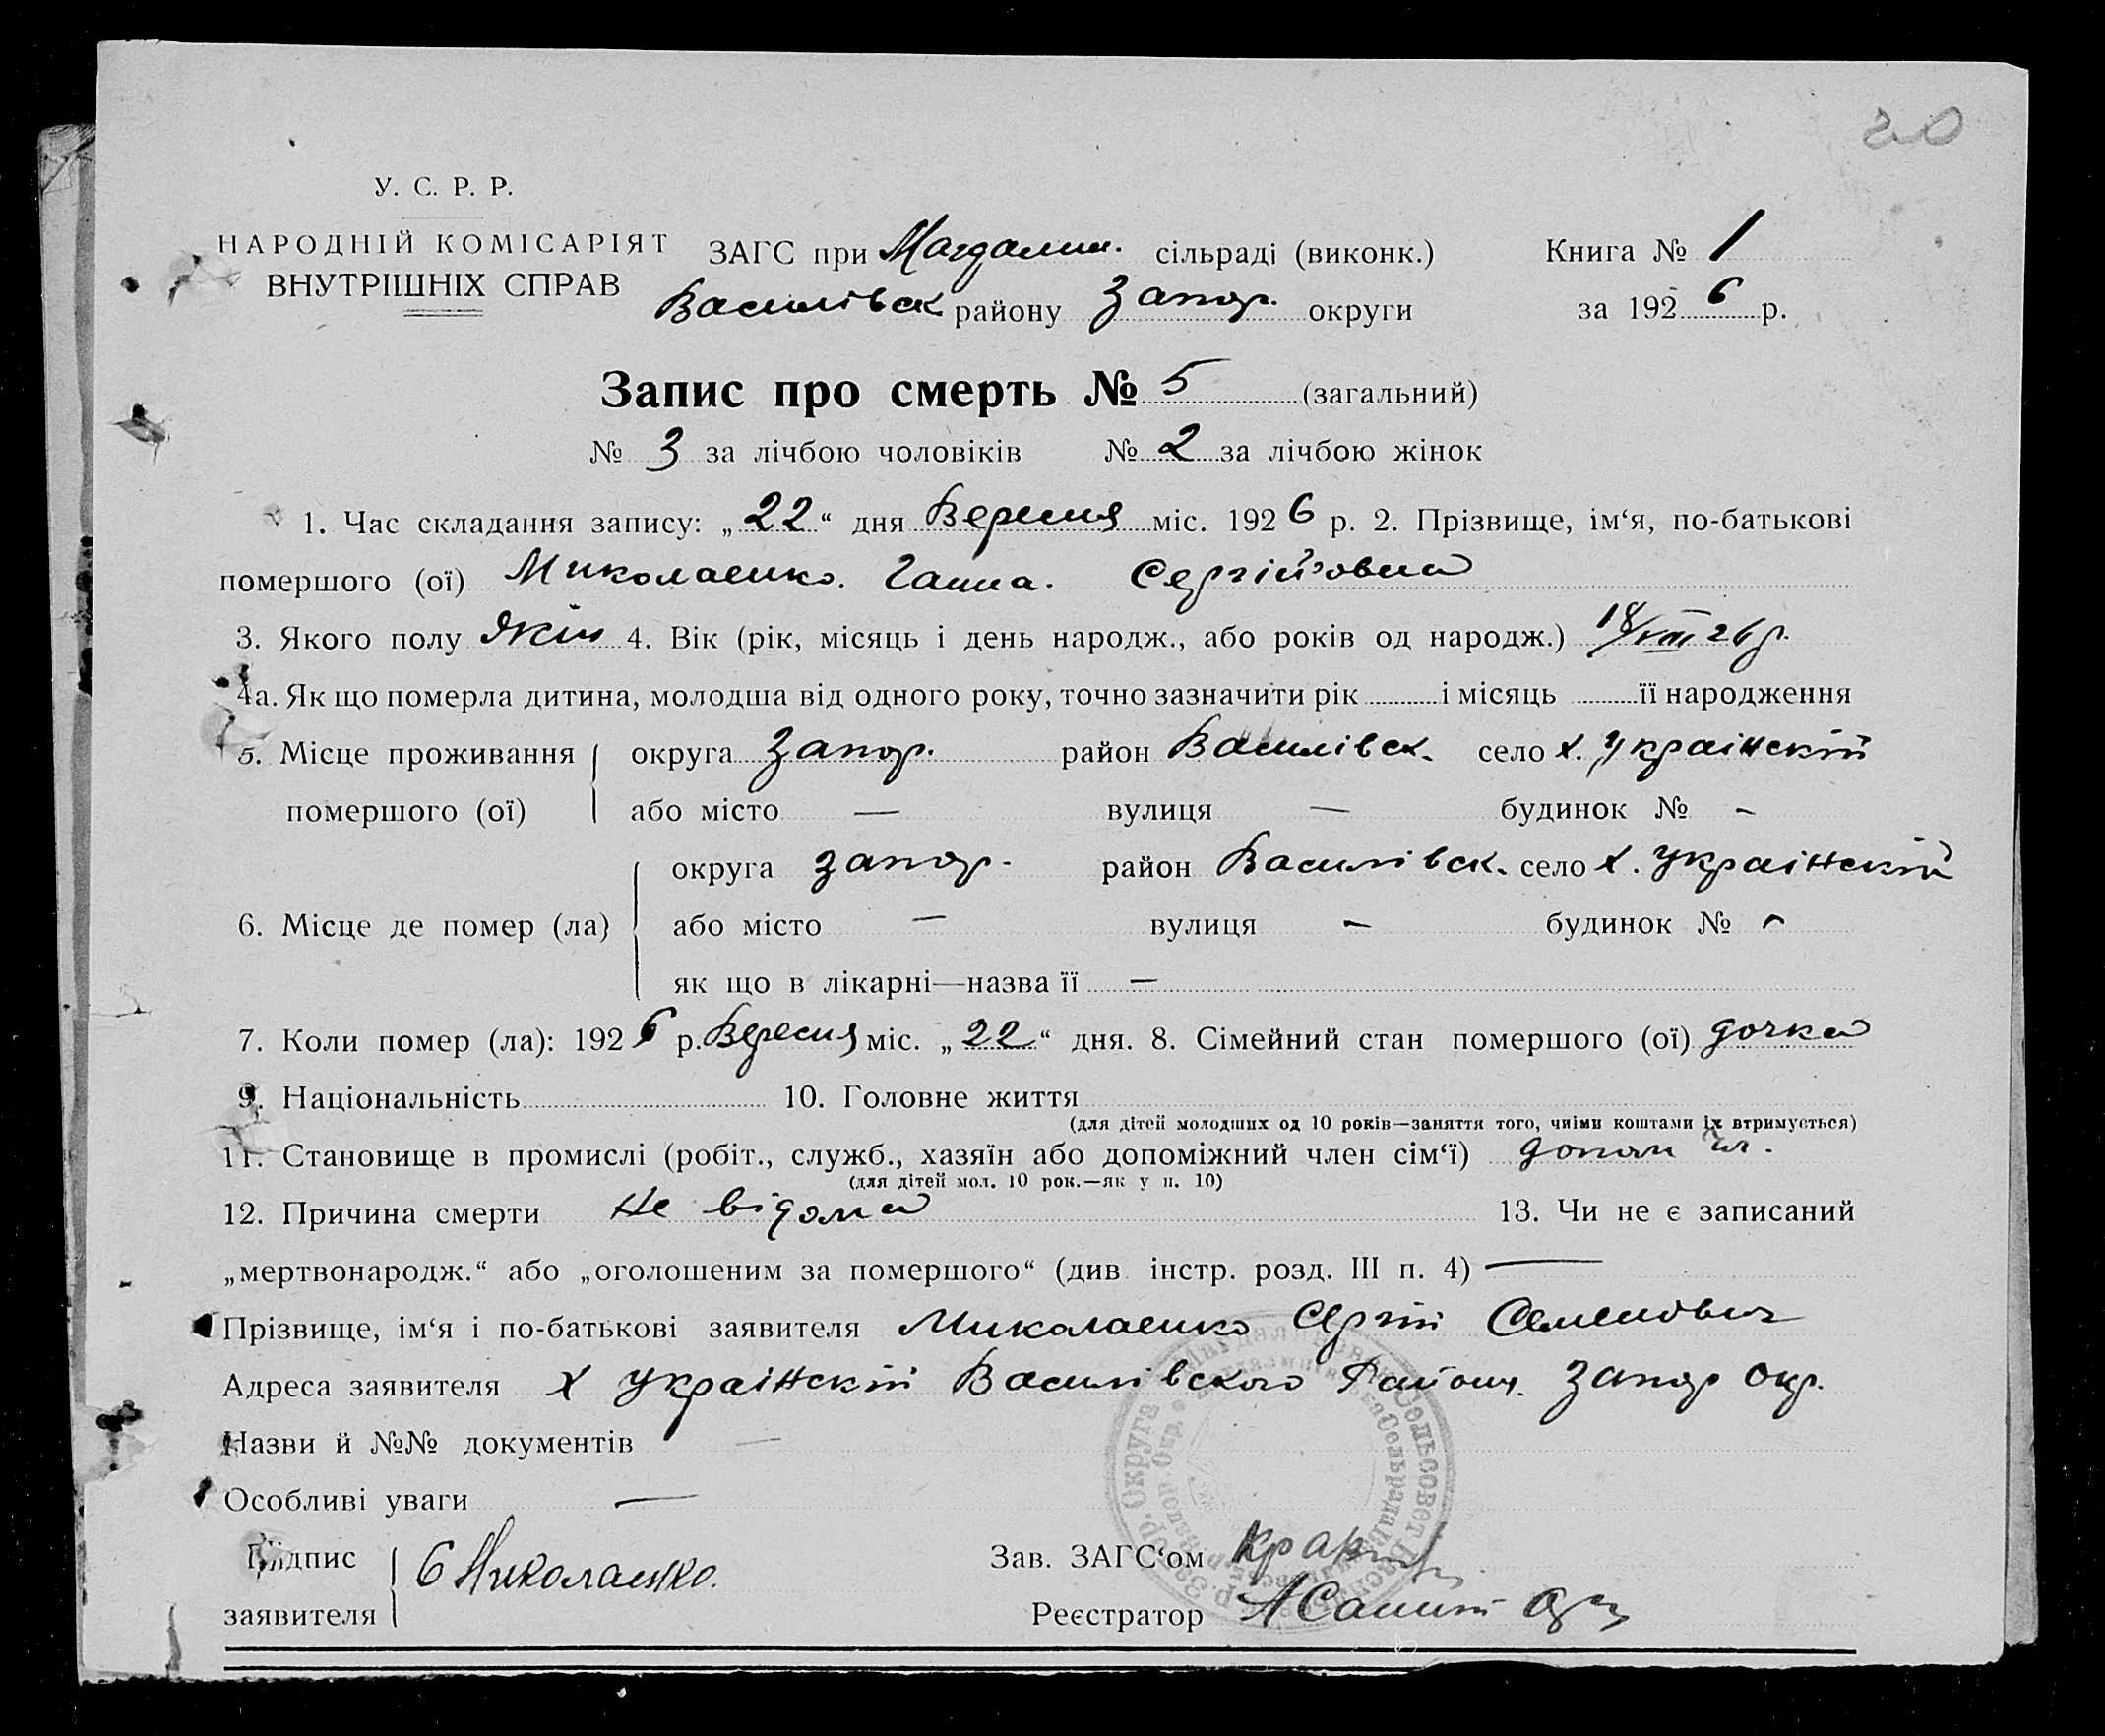 20
У. С. Р. Р.
НАРОДНІЙ КОМІСАРІЯТ
ВНУТРІШНІХ СПРАВ
ЗАГС при Магдалин. сільраді (виконк.) Книга № 1
Василівск району Запор. округи за 1926 р.
Запис про смерть № 5 (загальний)
№ 3 за лічбою чоловіків № 2 за лічбою жінок
1. Час складання запису: „22“ дня Вересня міс. 1926 р. 2. Прізвище, ім‘я, по-батькові
помершого (ої) Миколаенко. Ганна. Сергійовна
3. Якого полу жін 4. Вік (рік, місяць і день народж., або років од народж.) 18/VIII 26 р.
4а. Як що померла дитина, молодша від одного року, точно зазначити рік і місяць її народження
5. Місце проживання округа Запор. район Василівск. село х. Украінскій
помершого (ої) або місто — вулиця — будинок № -
округа Запор. район Василівск. село х. Украінскій
6. Місце де помер (ла) або місто — вулиця - будинок № -
як що в лікарні—назва її —
7. Коли помер (ла): 1926 р. Вересня міс. „22“ дня. 8. Сімейний стан помершого (ої) дочка
9. Національність 10. Головне життя
(для дітей молодших од 10 років—заняття того, чиїми коштами їх втримується)
11. Становище в промислі (робіт., служб., хазяїн або допоміжний член сім‘ї) допом чл.
(для дітей мол. 10 рок.—як у п. 10)
12. Причина смерти не відома 13. Чи не є записаний
„мертвонародж.“ або „оголошеним за помершого“ (див. інстр. розд. III п. 4) —
Прізвище, ім‘я і по-батькові заявителя Миколаенко Сергій Семенович
Адреса заявителя х Украінскій Василівского Району. Запор окр.
Назви й №№ документів —
Особливі уваги —
Підпис
заявителя
С Николаенко.
Зав. ЗАГС‘ом
Реєстратор